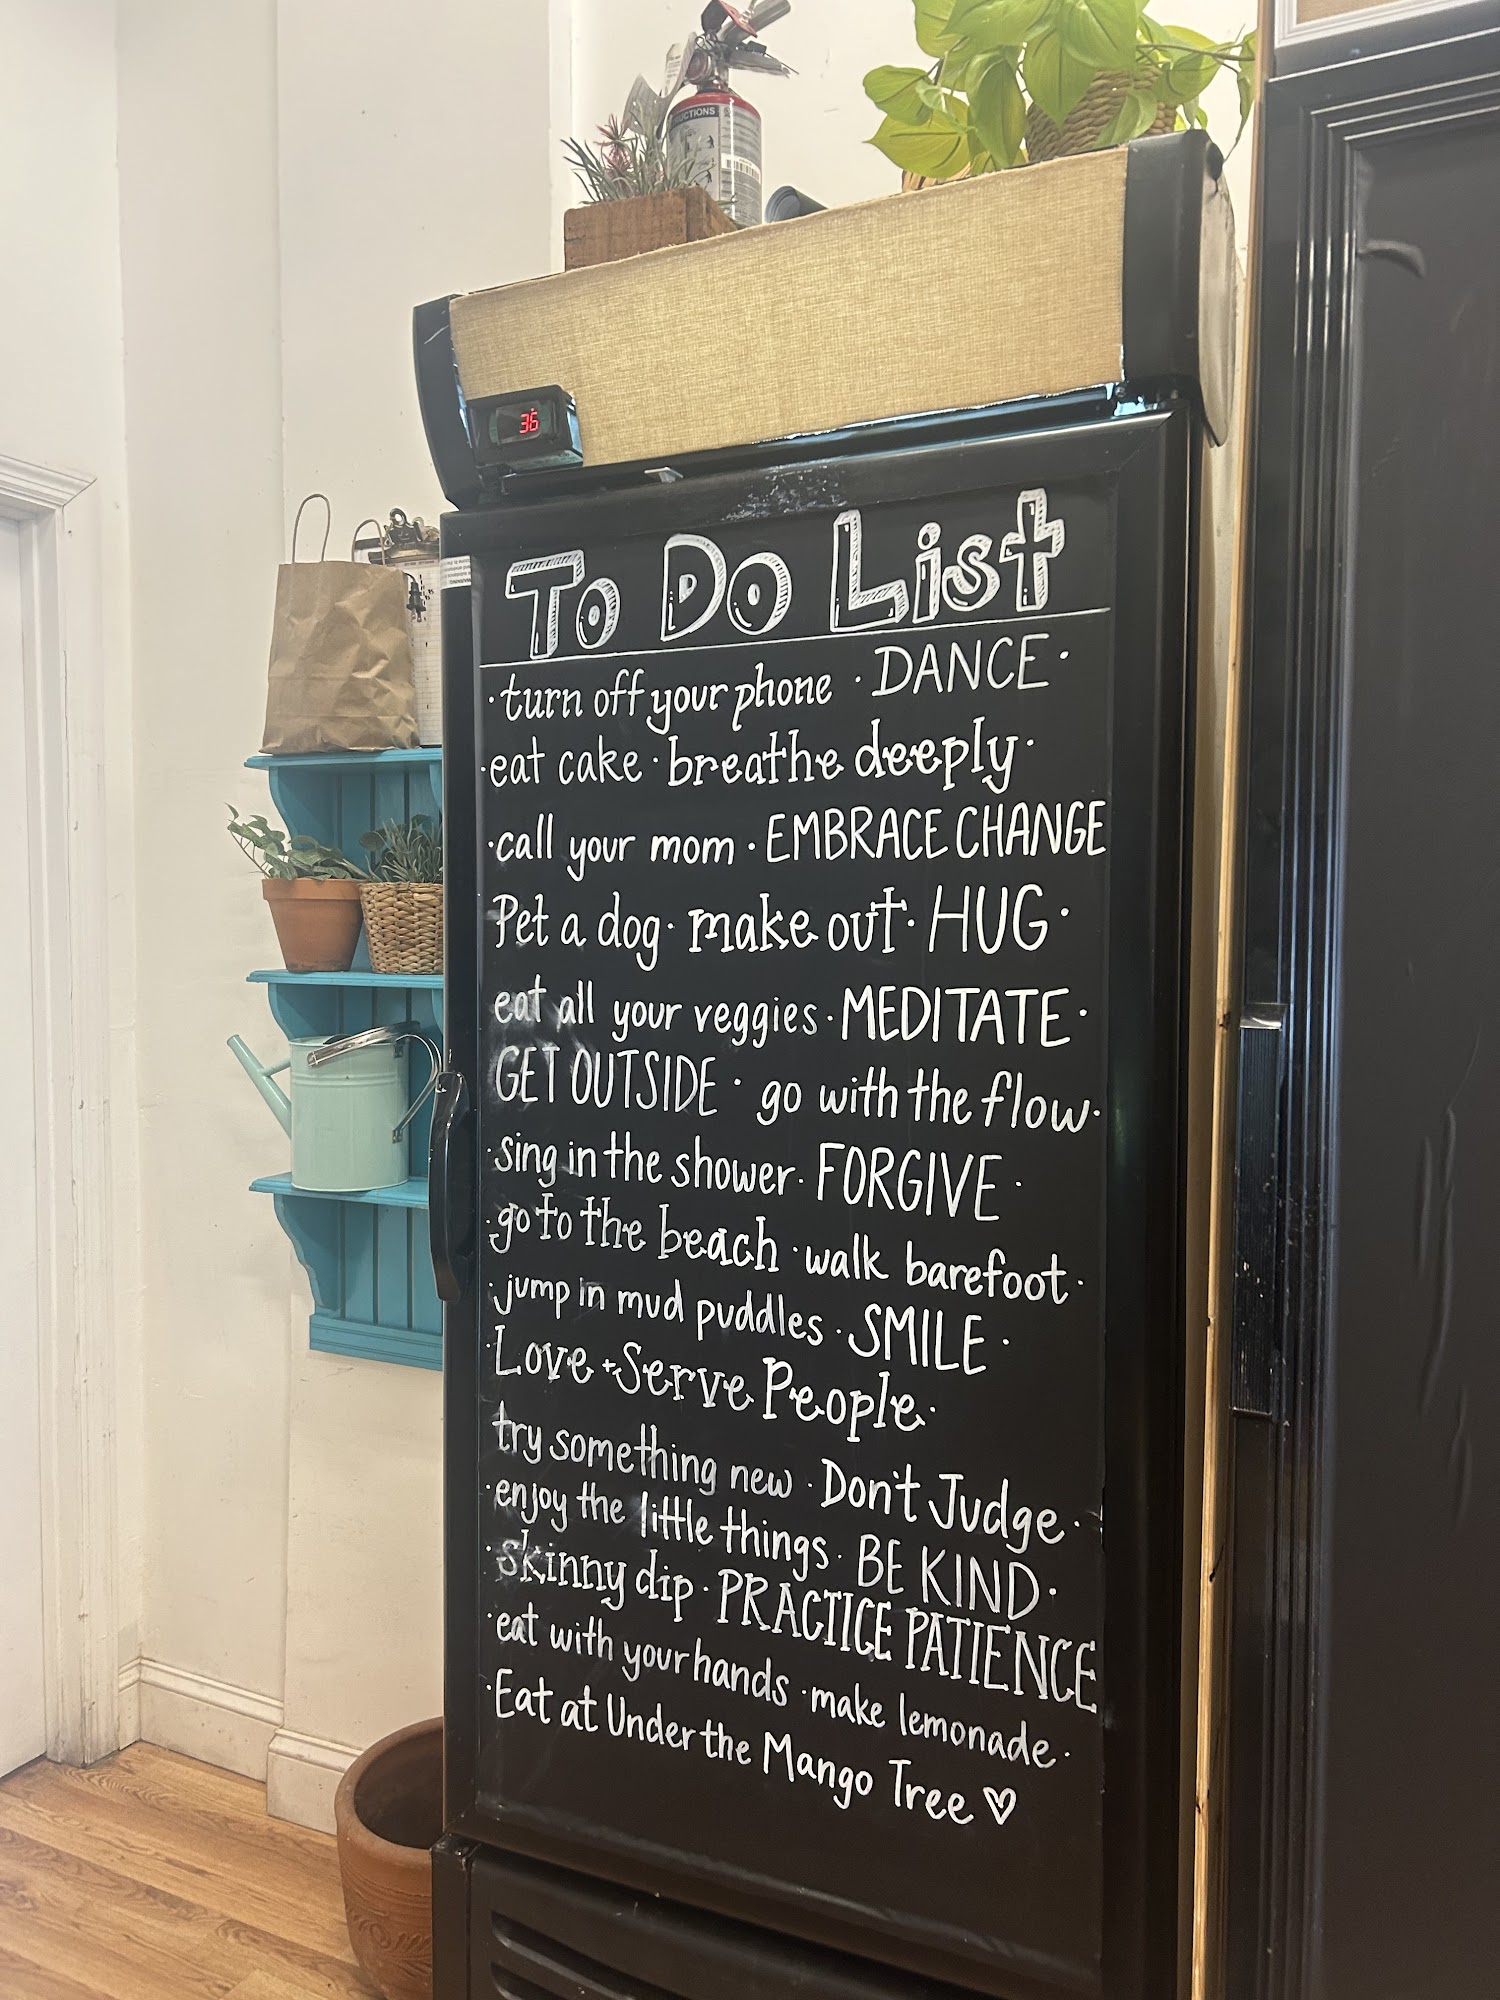 UCTIONS
36
To Do List
·turn off your phone · DANCE·
·eat cake · breathe deeply·
·call your mom · EMBRACE CHANGE
Pet a dog· make out· HUG·
eat all your veggies · MEDITATE·
GET OUTSIDE · go with the flow·
·sing in the shower· FORGIVE ·
·go to the beach · walk barefoot·
·jump in mud puddles · SMILE ·
·Love + Serve People·
try something new · Don't Judge ·
·enjoy the little things · BE KIND·
·skinny dip · PRACTICE PATIENCE
·eat with your hands · make lemonade·
·Eat at Under the Mango Tree ♡